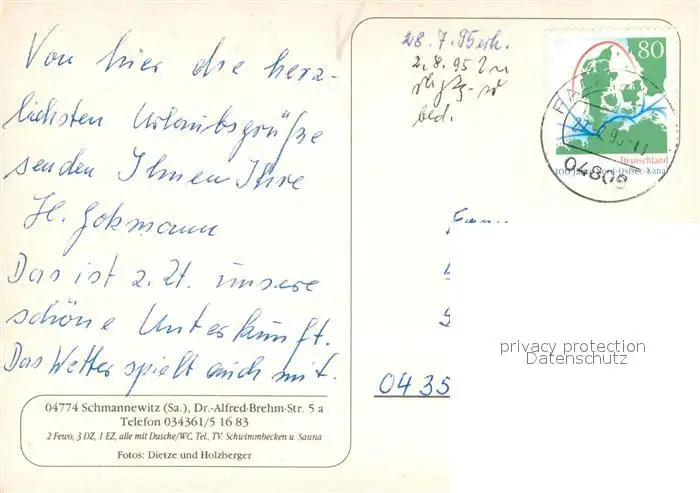 Von hier die herz-
lichsten Urlaubsgrüße
senden Ihnen Ihre
H. Gohmann
Das ist z. Zt. unsere
schöne Unterkunft.
Das Wetter spielt auch mit.
04774 Schmannewitz (Sa.), Dr.-Alfred-Brehm-Str. 5 a
Telefon 034361/5 16 83
2 Fewo, 3 DZ, 1 EZ, alle mit Dusche/WC, Tel., TV. Schwimmbecken u. Sauna
Fotos: Dietze und Holzberger
28. 7. 95 erh.
2. 8. 95
bed.
80
Deutschland
100 Jahre Nord-Ostsee-Kanal
04808
04 35
privacy protection
Datenschutz